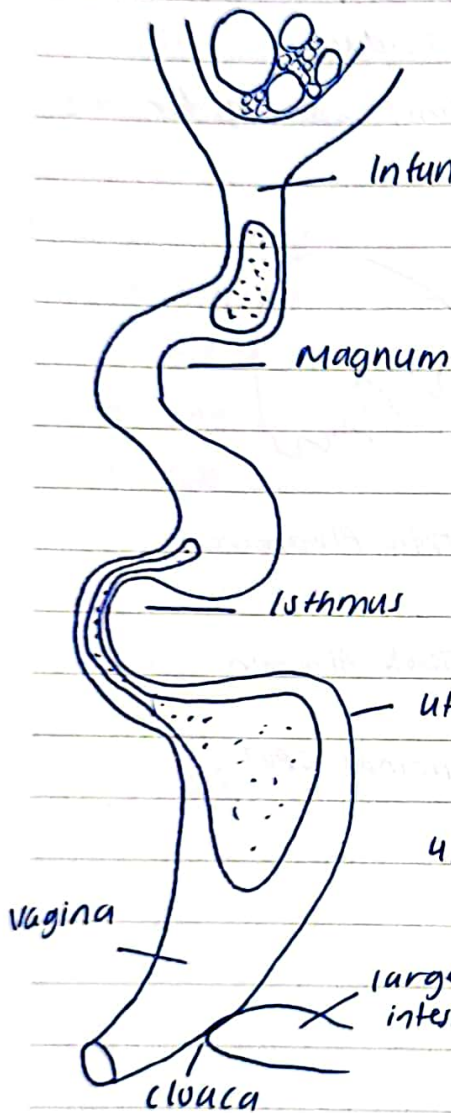 Infun
Magnum
Isthmus
ut
u
vagina
large
intes
cloaca